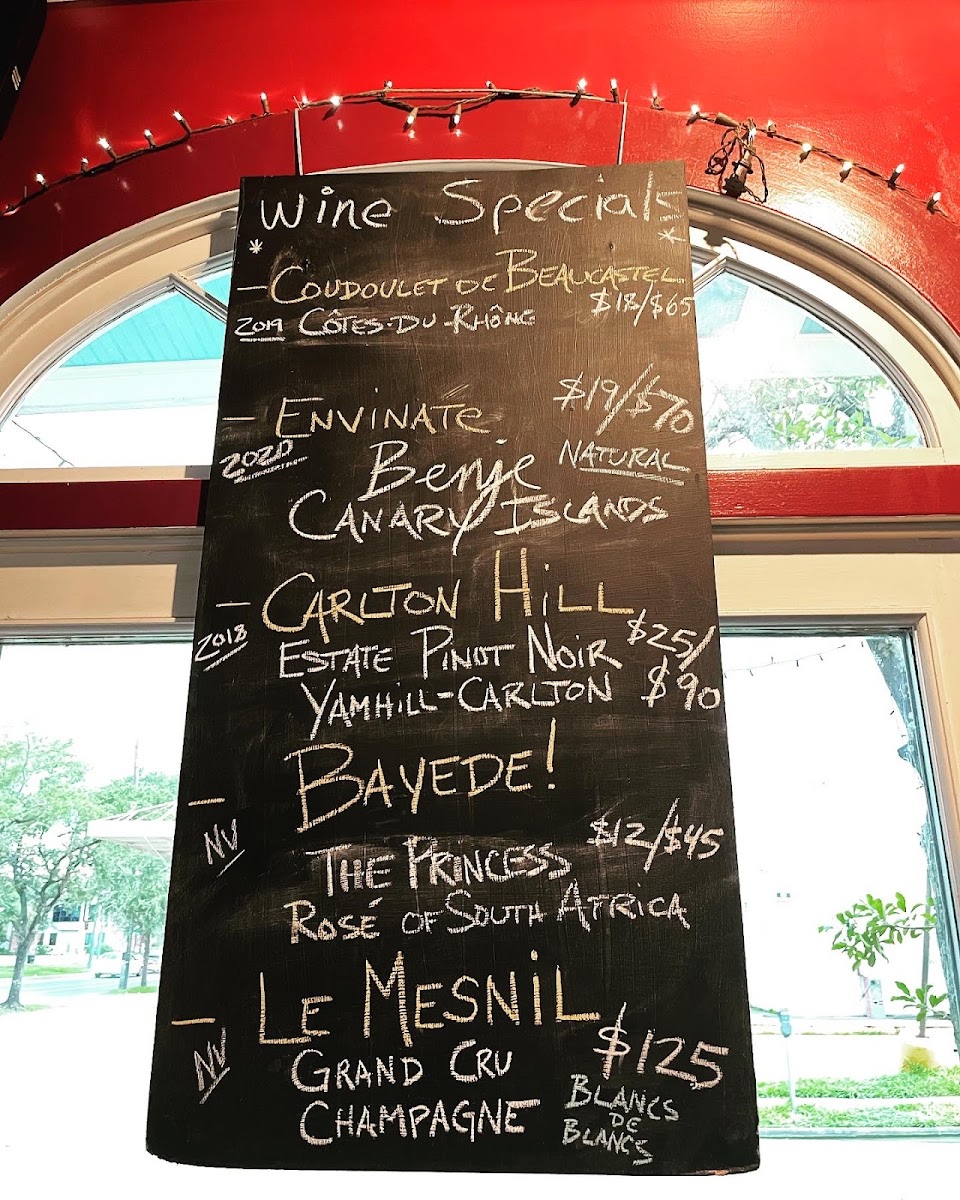 Wine Specials
* *
– COUDOULET DE BEAUCASTEL
2019 CÔTES-DU-RHÔNE $18/$65
– ENVINATE $19/$70
2020 Benje NATURAL
CANARY ISLANDS
– CARLTON HILL
2018 ESTATE PINOT NOIR $25/
YAMHILL-CARLTON $90
– BAYEDE!
NV THE PRINCESS $12/$45
ROSÉ OF SOUTH AFRICA
– LE MESNIL
NV GRAND CRU $125
CHAMPAGNE BLANCS
DE
BLANCS